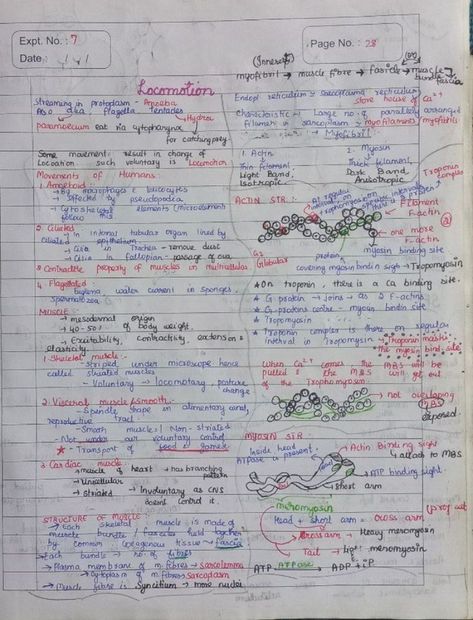 Expt. No. : 7
Date
Page No. : 28
Locomotion
Streaming in protoplasm - Amoeba
Also cilia, flagella, tentacles
Hydra
paramoecium
cytopharynx
for catching prey
Some movement result in change of
Location such voluntary is Locomotion
Movements of Humans :
1. Amoeboid :
→ By macrophages & leucocytes
→ effected by pseudopodia
→ Cytoskeletal elements (microfilament)
2. Ciliated
→ In internal tubular organ lined by
ciliated epithelium
→ Cilia in Trachea - remove dust
→ Cilia in Fallopian - passage of ova
3. Contractile property of muscles in multicellular
4. Flagellated :
water current in sponges,
spermatozoa
MUSCLE :
→ mesodermal origin
→ 40 - 50% of body weight
→ Excitability, contractility, extension &
elasticity
1. Skeletal muscle :
- Striped under microscope hence
called striated muscles
- Voluntary → locomotary, posture
change
2. Visceral muscle / Smooth :-
- Spindle shape in alimentary canal,
reproductive tract
- Smooth muscle : Non - striated
- Not under our voluntary control
★ - Transport of food & gametes
3. Cardiac muscle
→ muscle of heart → has branching
pattern
→ Uninucellular
→ Striated → Involuntary as CNS
doesnt control it.
STRUCTURE OF MUSCLE :
→ Each skeletal muscle is made of
muscle bundle / fascicle held together
by common collagenous tissue → fascia
→ Each bundle → no. of fibres
→ Plasma membrane of m. fibres → Sarcolemma
→ Cytoplasm of m. fibres → Sarcoplasm
→ Muscle fibre is Syncitium → more nuclei
(Innermost)
myofibril → muscle fibre → fasicle → muscle
bundle
fascia
Endopl. reticulum → Sarcoplasmic reticulum
store house of Ca2+
Characteristic → Large no. of parallely arranged
filament in sarcoplasm → myofilaments / myofibrils
1. Actin
Thin filament
Light Band,
Isotropic
2. Myosin
Thick filament,
Dark Band
Anisotropic
Troponin
complex
ACTIN STR :
At regular
filament
F-actin
one more
F-actin
myosin binding site
Globular
protein
covering myosin bindin sigh → Tropomyosin
★ On troponin, there is a Ca binding site.
★ G protein → Joins → as 2 F-actins
★ G protein contre → myosin bindin site
★ Tropomyosin
★ Troponin complex is there on regular
interval in Tropomyosin → Troponin masks
the myosin bind. site
When Ca2+ comes the MBS will be
pulled & the MBS will get out
of the Trophomyosin
not overlaping
MBS
exposed
MYOSIN STR
Inside head
ATPase is present.
Actin Binding sigh
↓ attach to MBS
ATP binding sight
short arm
meromyosin
Head + short arm = cross arm
Cross arm → Heavy meromyosin
Tail → Light meromyosin
ATP ATPase → ADP + iP